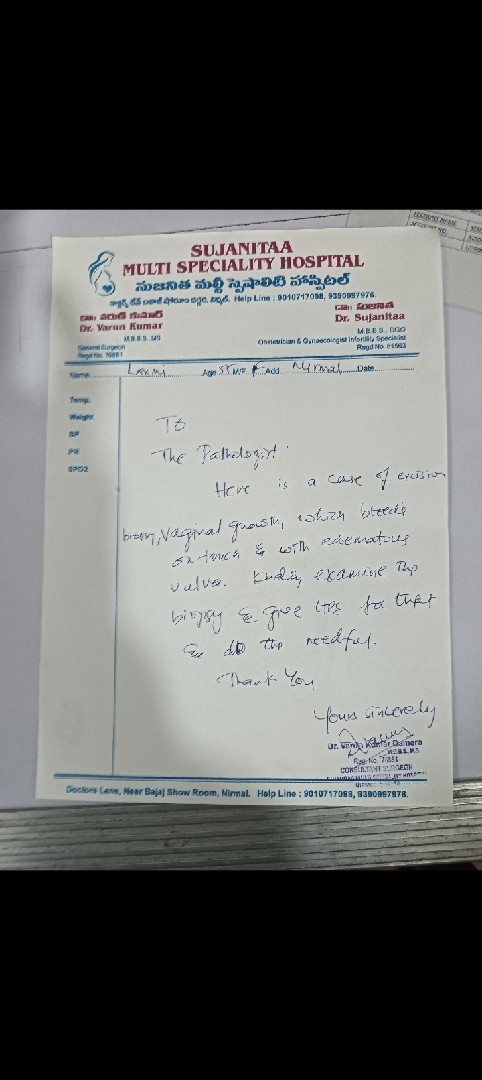 SUJANITAA
MULTI SPECIALITY HOSPITAL
సుజనిత మల్టీ స్పెషాలిటీ హాస్పిటల్
Help Line : 9010717098, 9390997976.
Dr. Varun Kumar
M.B.B.S., MS
General Surgeon
Regd No. 76881
డా॥ సుజనిత
Dr. Sujanitaa
M.B.B.S., DGO
Obstetrician & Gynaecologist Infertility Specialist
Regd No. 81963
Name Laxmi Age 55 M/F F Add. Nirmal Date
Temp.
Weight
BP
PR
SPO2
To
The Pathologist.
Here is a case of excision
biopsy, Vaginal growth, which bleeds
on touch & with edematous
vulva. Kindly examine the
biopsy & give for that
& do the needful.
Thank You
Yours sincerely
Dr. Varun Kumar Damera
M.B.B.S. M.S
Reg. No. 76881
CONSULTANT SURGEON
SUJANITAA MULTI SPECIALIST HOSPITAL
Doctors Lane, Near Bajaj Show Room, Nirmal. Help Line : 9010717098, 9390997976.